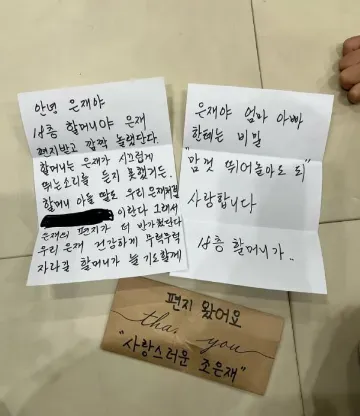 안녕 은재야
할머니야 은재
편지받고 깜짝 놀랬단다.
할머니는 은재가 시끄럽게
뛰는소리를 듣지 못했거든.
할머니 아들 딸도 우리 은재처럼
이란다 그래서
은재의 편지가 더 반가웠단다
우리 은재 건강하게 무럭무럭
자라길 할머니가 늘 기도할께
은재야 엄마 아빠
한테는 비밀
"맘껏 뛰어놀아도 되"
사랑합니다
층 할머니가..
편지 왔어요
thank you
"사랑스러운 조은재"